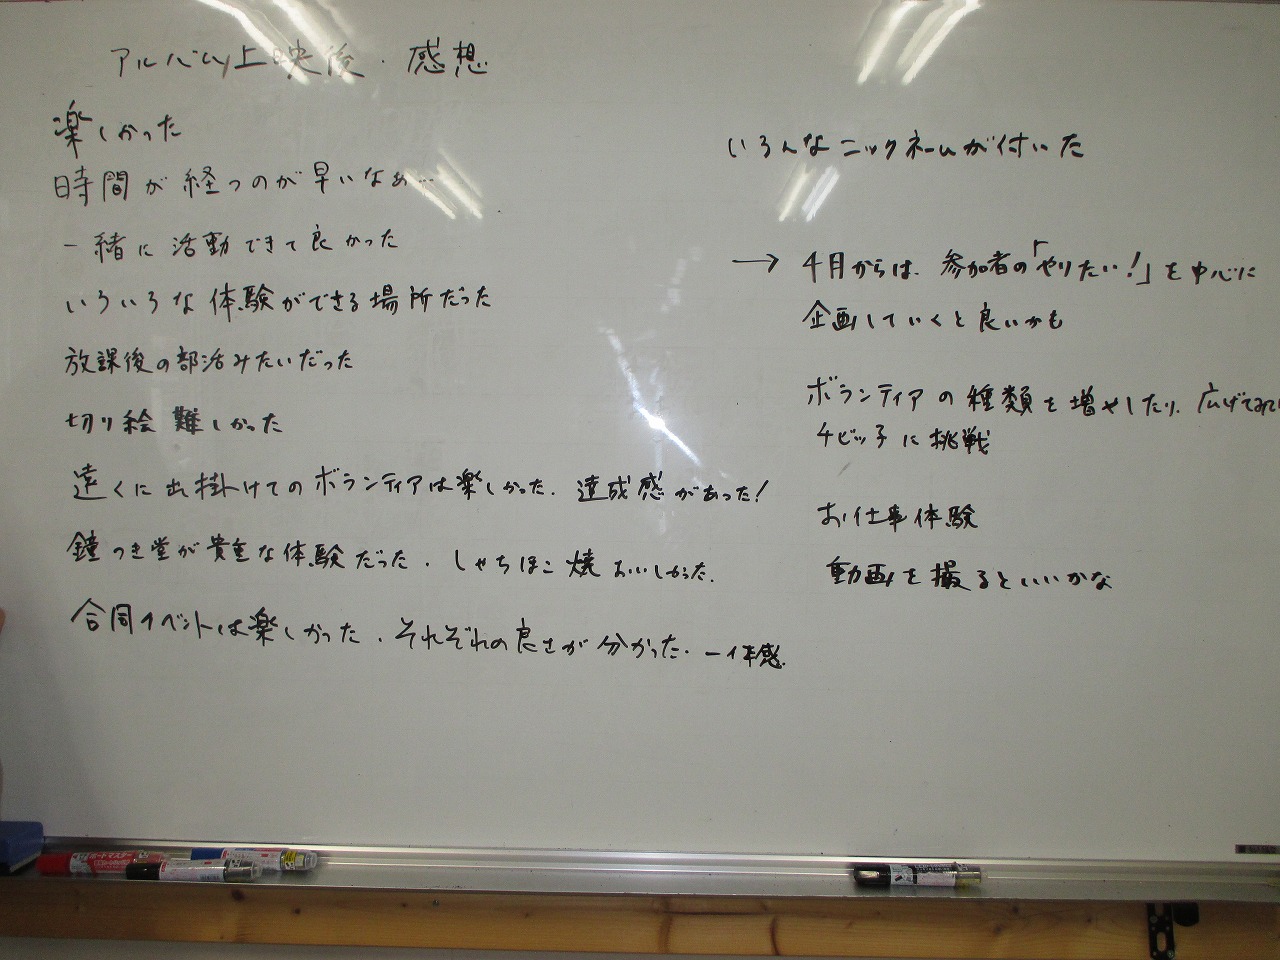 アルバム上映後・感想
楽しかった
時間が経つのが早いなぁ…
一緒に活動できて良かった
いろいろな体験ができる場所だった
放課後の部活みたいだった
切り絵 難しかった
遠くに出掛けてのボランティアは楽しかった. 達成感があった!
鐘つき堂が貴重な体験だった. しゃちほこ焼おいしかった.
合同イベントは楽しかった. それぞれの良さが分かった. 一体感.
いろんなニックネームが付いた
→ 4月からは. 参加者の「やりたい!」を中心に
企画していくと良いかも
ボランティアの種類を増やしたり. 広げてみて
チビッ子に挑戦
お仕事体験
動画を撮るといいかな
ボードマスター